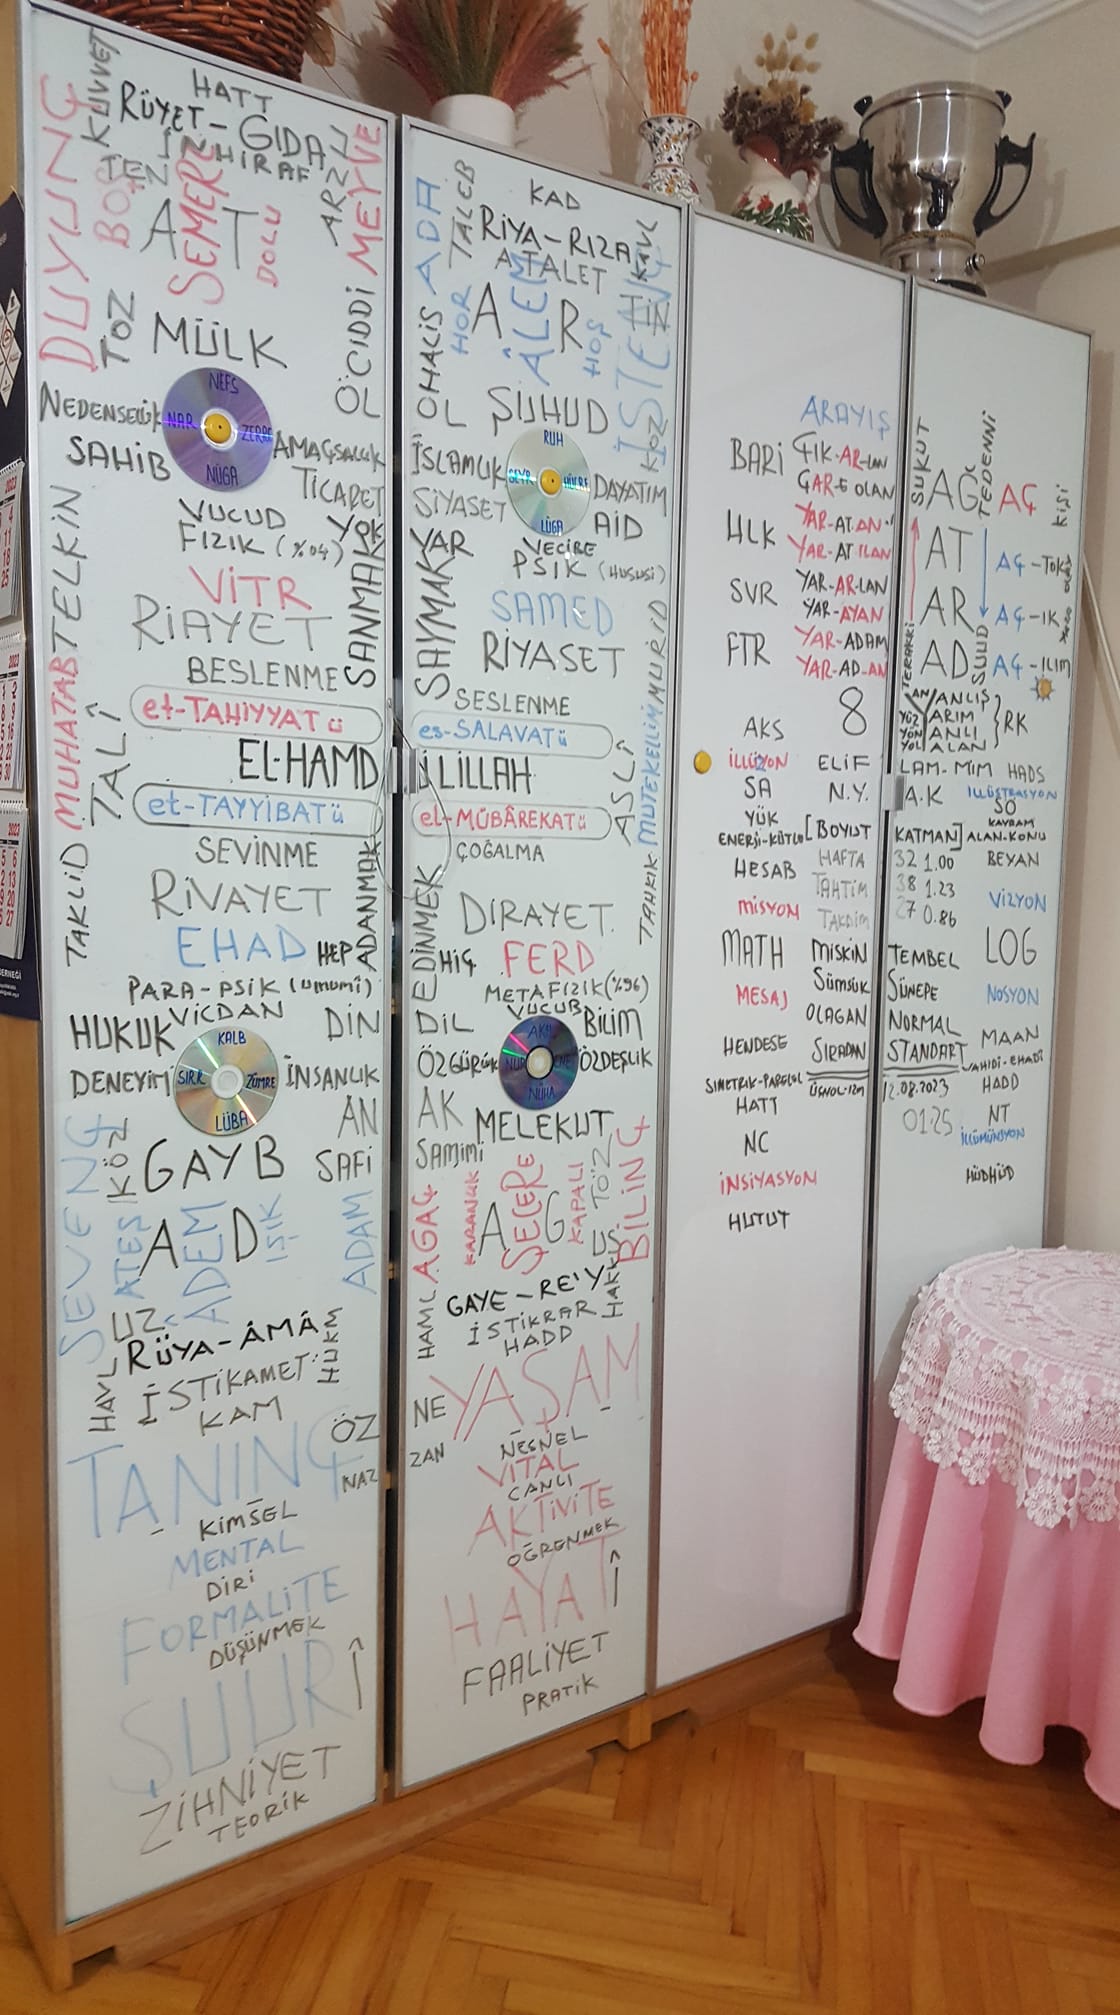 KUVVET
HATT
RÜYET - GIDA
İNHİRAF
TEN
DUYUNÇ
BOŞ
SEMERE
AT
DOLU
ARZU
MEYVE
TOZ
MÜLK
ÖCİDDİ
ÖL
NEFS
NAR
ZERRE
NÜGA
NEDENSELLİK
SAHİB
AMAÇSALLIK
TİCARET
VUCUD
FIZIK (%04)
YOK
TELKİN
VİTR
RİAYET
SANMAK
BESLENME
MUHATAB
et-TAHİYYATÜ
TALÎ
EL-HAMD
et-TAYYİBATÜ
SEVİNME
TAKLİD
RİVAYET
ADANMAK
EHAD
HEP
PARA-PSİK (UMUMÎ)
VİCDAN
HUKUK
DİN
KALB
SIRR
ZÜMRE
LÜBA
DENEYİM
İNSANLIK
AN
SEVENÇ
KÖZ
GAYB
SAFİ
ATEŞ
AD
ADEM
IŞIK
ADAM
UZ
RÜYA-ÂMÂ
HAVL
İSTİKAMET
HUKM
KAM
ÖZ
TANINÇ
NAZ
KİMSEL
MENTAL
DİRİ
FORMALİTE
DÜŞÜNMEK
ŞUURÎ
ZİHNİYET
TEORİK
ADA
TALEB
KAD
RİYA-RIZA
KAVL
ATALET
HOR
AR
ÂLEM
HOŞ
İSTENÇ
TİN
OHALİS
ÖL
ŞUHUD
KOZ
RUH
SEYR
HÜCRE
LÜGA
İSLAMLIK
SİYASET
DAYATIM
AİD
YAR
VECİBE
PSİK (HUSUSİ)
SAYMAK
SAMED
RİYASET
MURİD
SESLENME
es-SALAVATÜ
ÜLİLLAH
ASLÎ
MUTEKELLİM
el-MÜBÂREKATÜ
ÇOĞALMA
EDİNMEK
DİRAYET
TAHKIK
HİÇ
FERD
METAFİZİK (%96)
VUCUB
DİL
BİLİM
AKIL
NUR
NÜHA
ÖZGÜRLÜK
ÖZDEŞLİK
AK
MELEKUT
SAMİMİ
AGAÇ
KARANLIK
AG
ŞECERE
KAPALI
TÖZ
US
BİLİNÇ
HAML
GAYE-RE'Y
İSTİKRAR
HADD
HAKK
NE
YAŞAM
ZAN
NESNEL
VİTAL
CANLI
AKTİVİTE
ÖĞRENMEK
HAYATÎ
FAALİYET
PRATİK
ARAYIŞ
BARİ
ÇIK-AR-LAN
ÇAR-E OLAN
HLK
YAR-ATAN
YAR-AT ILAN
SVR
YAR-AR-LAN
YAR-AYAN
FTR
YAR-ADAM
YAR-AD-AN
8
AKS
İLLÜZYON
ELİF
SA
N.Y.
YÜK
ENERJİ-KÜTLE
[BOYUT
HESAB
HAFTA
TAHTİM
MİSYON
TAKDİM
MATH
MİSKİN
SÜMSÜK
MESAJ
OLAGAN
HENDESE
SIRADAN
SİMETRİK-PARELEL
HATT
NC
İNSİYASYON
HUTUT
SUKUT
AĞ
TEDENNİ
AÇ
KİŞİ
AT
AÇ-TOK
AR
AÇ-IK
TERAKKİ
AD
SUUD
AÇ-ILIM
YANLIŞ
YARIM
YANLI
YALAN
YÜZ
YÖN
YOL
RK
LAM-MİM
HADS
A.K
İLLÜSTRASYON
SO
KAVRAM
KATMAN]
ALAN-KONU
32 1.00
BEYAN
38 1.23
27 0.86
VİZYON
LOG
TEMBEL
SÜNEPE
NOSYON
NORMAL
MAAN
STANDART
VAHİDİ-EHADİ
12.08.2023
HADD
01:25
NT
İLLÜMÜNSYON
HÜDHÜD
2023
2023
2023